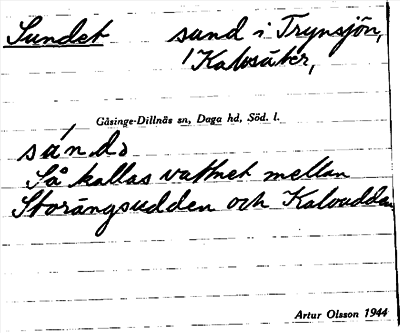 Sundet sund i Trynsjön,
Kalvsäter,
Gåsinge-Dillnäs sn, Daga hd, Söd. l.
Så kallas vattnet mellan
Storängsudden och Kalvudden
Artur Olsson 1944